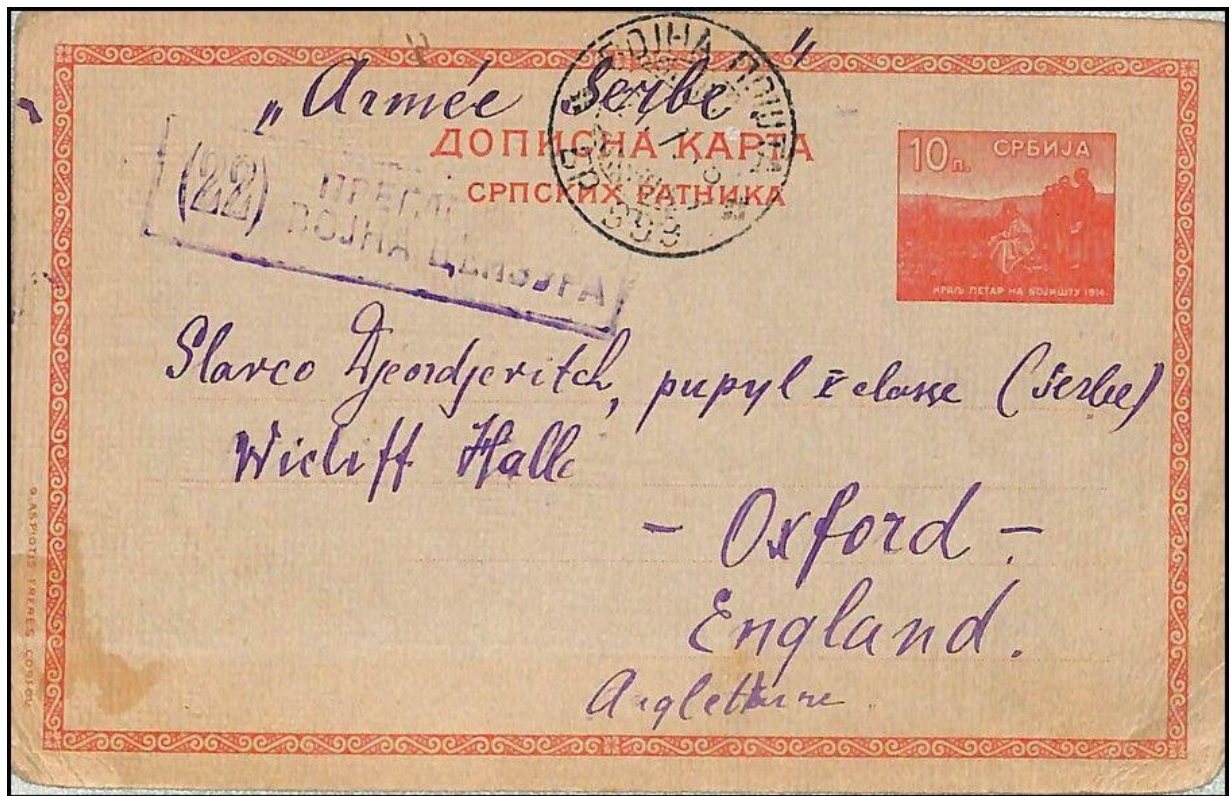 „Armée Serbe“
ДОПИСНА КАРТА
СРПСКИХ РАТНИКА
ВОЈНА ПОШТА
БР 999
10 п. СРБИЈА
КРАЉ ПЕТАР НА БОЈИШТУ 1914
(22)
ВОЈНА ЦЕНЗУРА
Slavco Djeordjevitch, pupyl X classe (serbe)
Wicliff Hall
- Oxford -
England.
Angleterre
ASPIOTIS FRERES, CORFOU